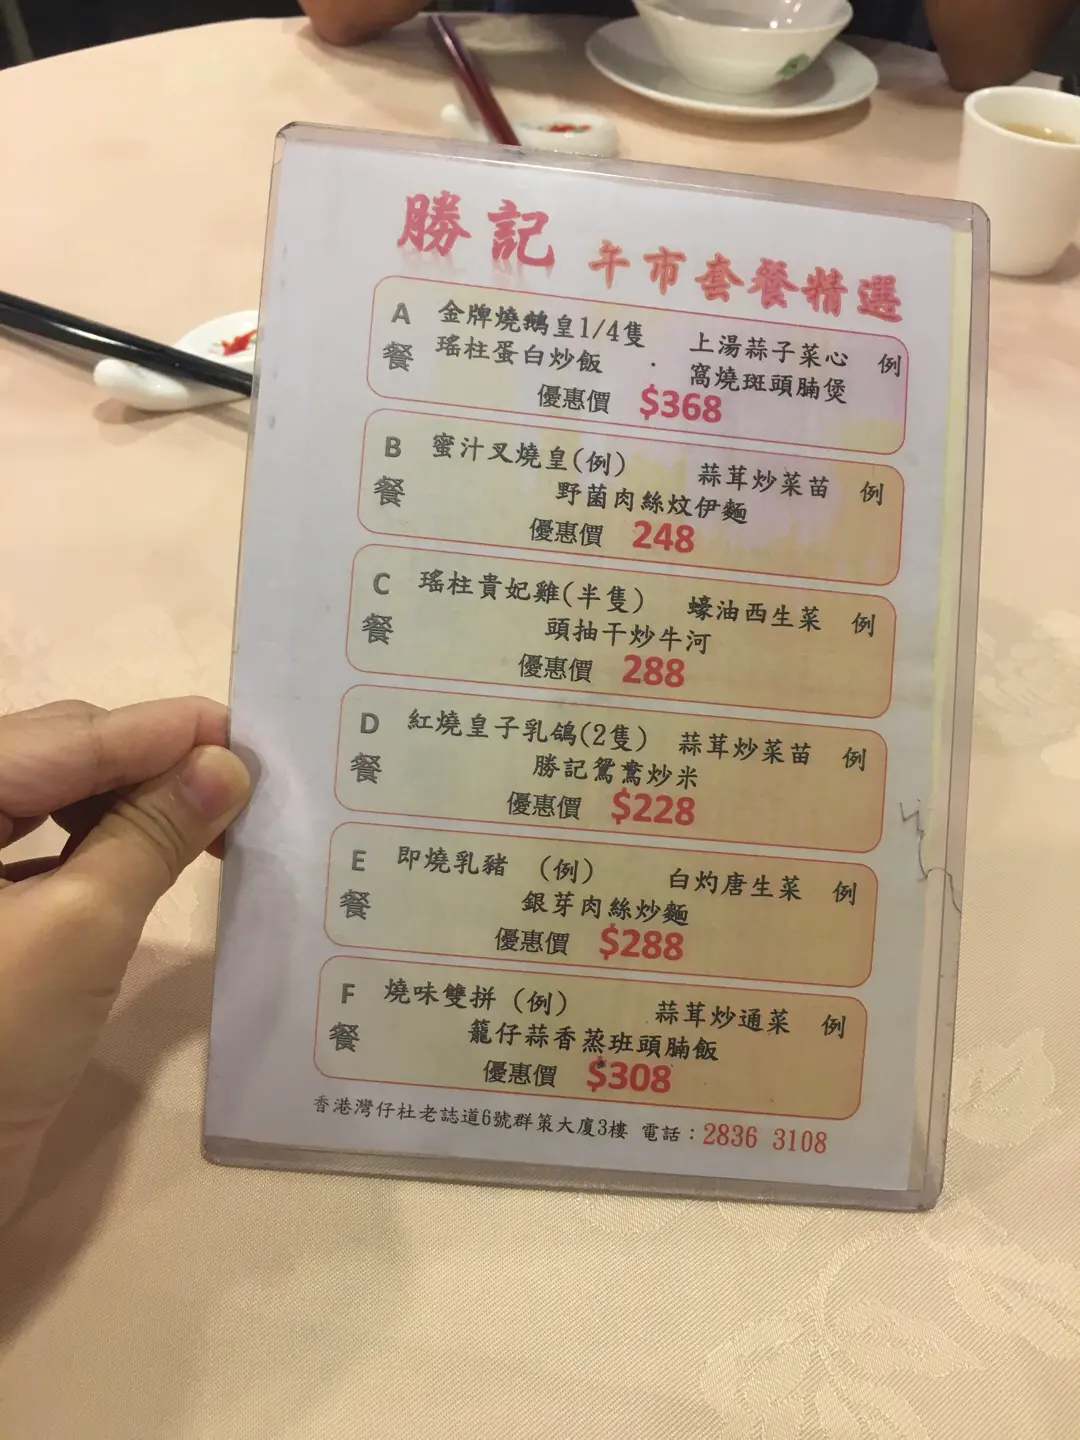 勝記 午市套餐精選
A餐 金牌燒鵝皇1/4隻 上湯蒜子菜心 例
瑤柱蛋白炒飯 · 窩燒斑頭腩煲
優惠價 $368
B餐 蜜汁叉燒皇(例) 蒜茸炒菜苗 例
野菌肉絲炆伊麵
優惠價 248
C餐 瑤柱貴妃雞(半隻) 蠔油西生菜 例
頭抽干炒牛河
優惠價 288
D餐 紅燒皇子乳鴿(2隻) 蒜茸炒菜苗 例
勝記鴛鴦炒米
優惠價 $228
E餐 即燒乳豬 (例) 白灼唐生菜 例
銀芽肉絲炒麵
優惠價 $288
F餐 燒味雙拼 (例) 蒜茸炒通菜 例
籠仔蒜香蒸班頭腩飯
優惠價 $308
香港灣仔杜老誌道6號群策大廈3樓 電話：2836 3108